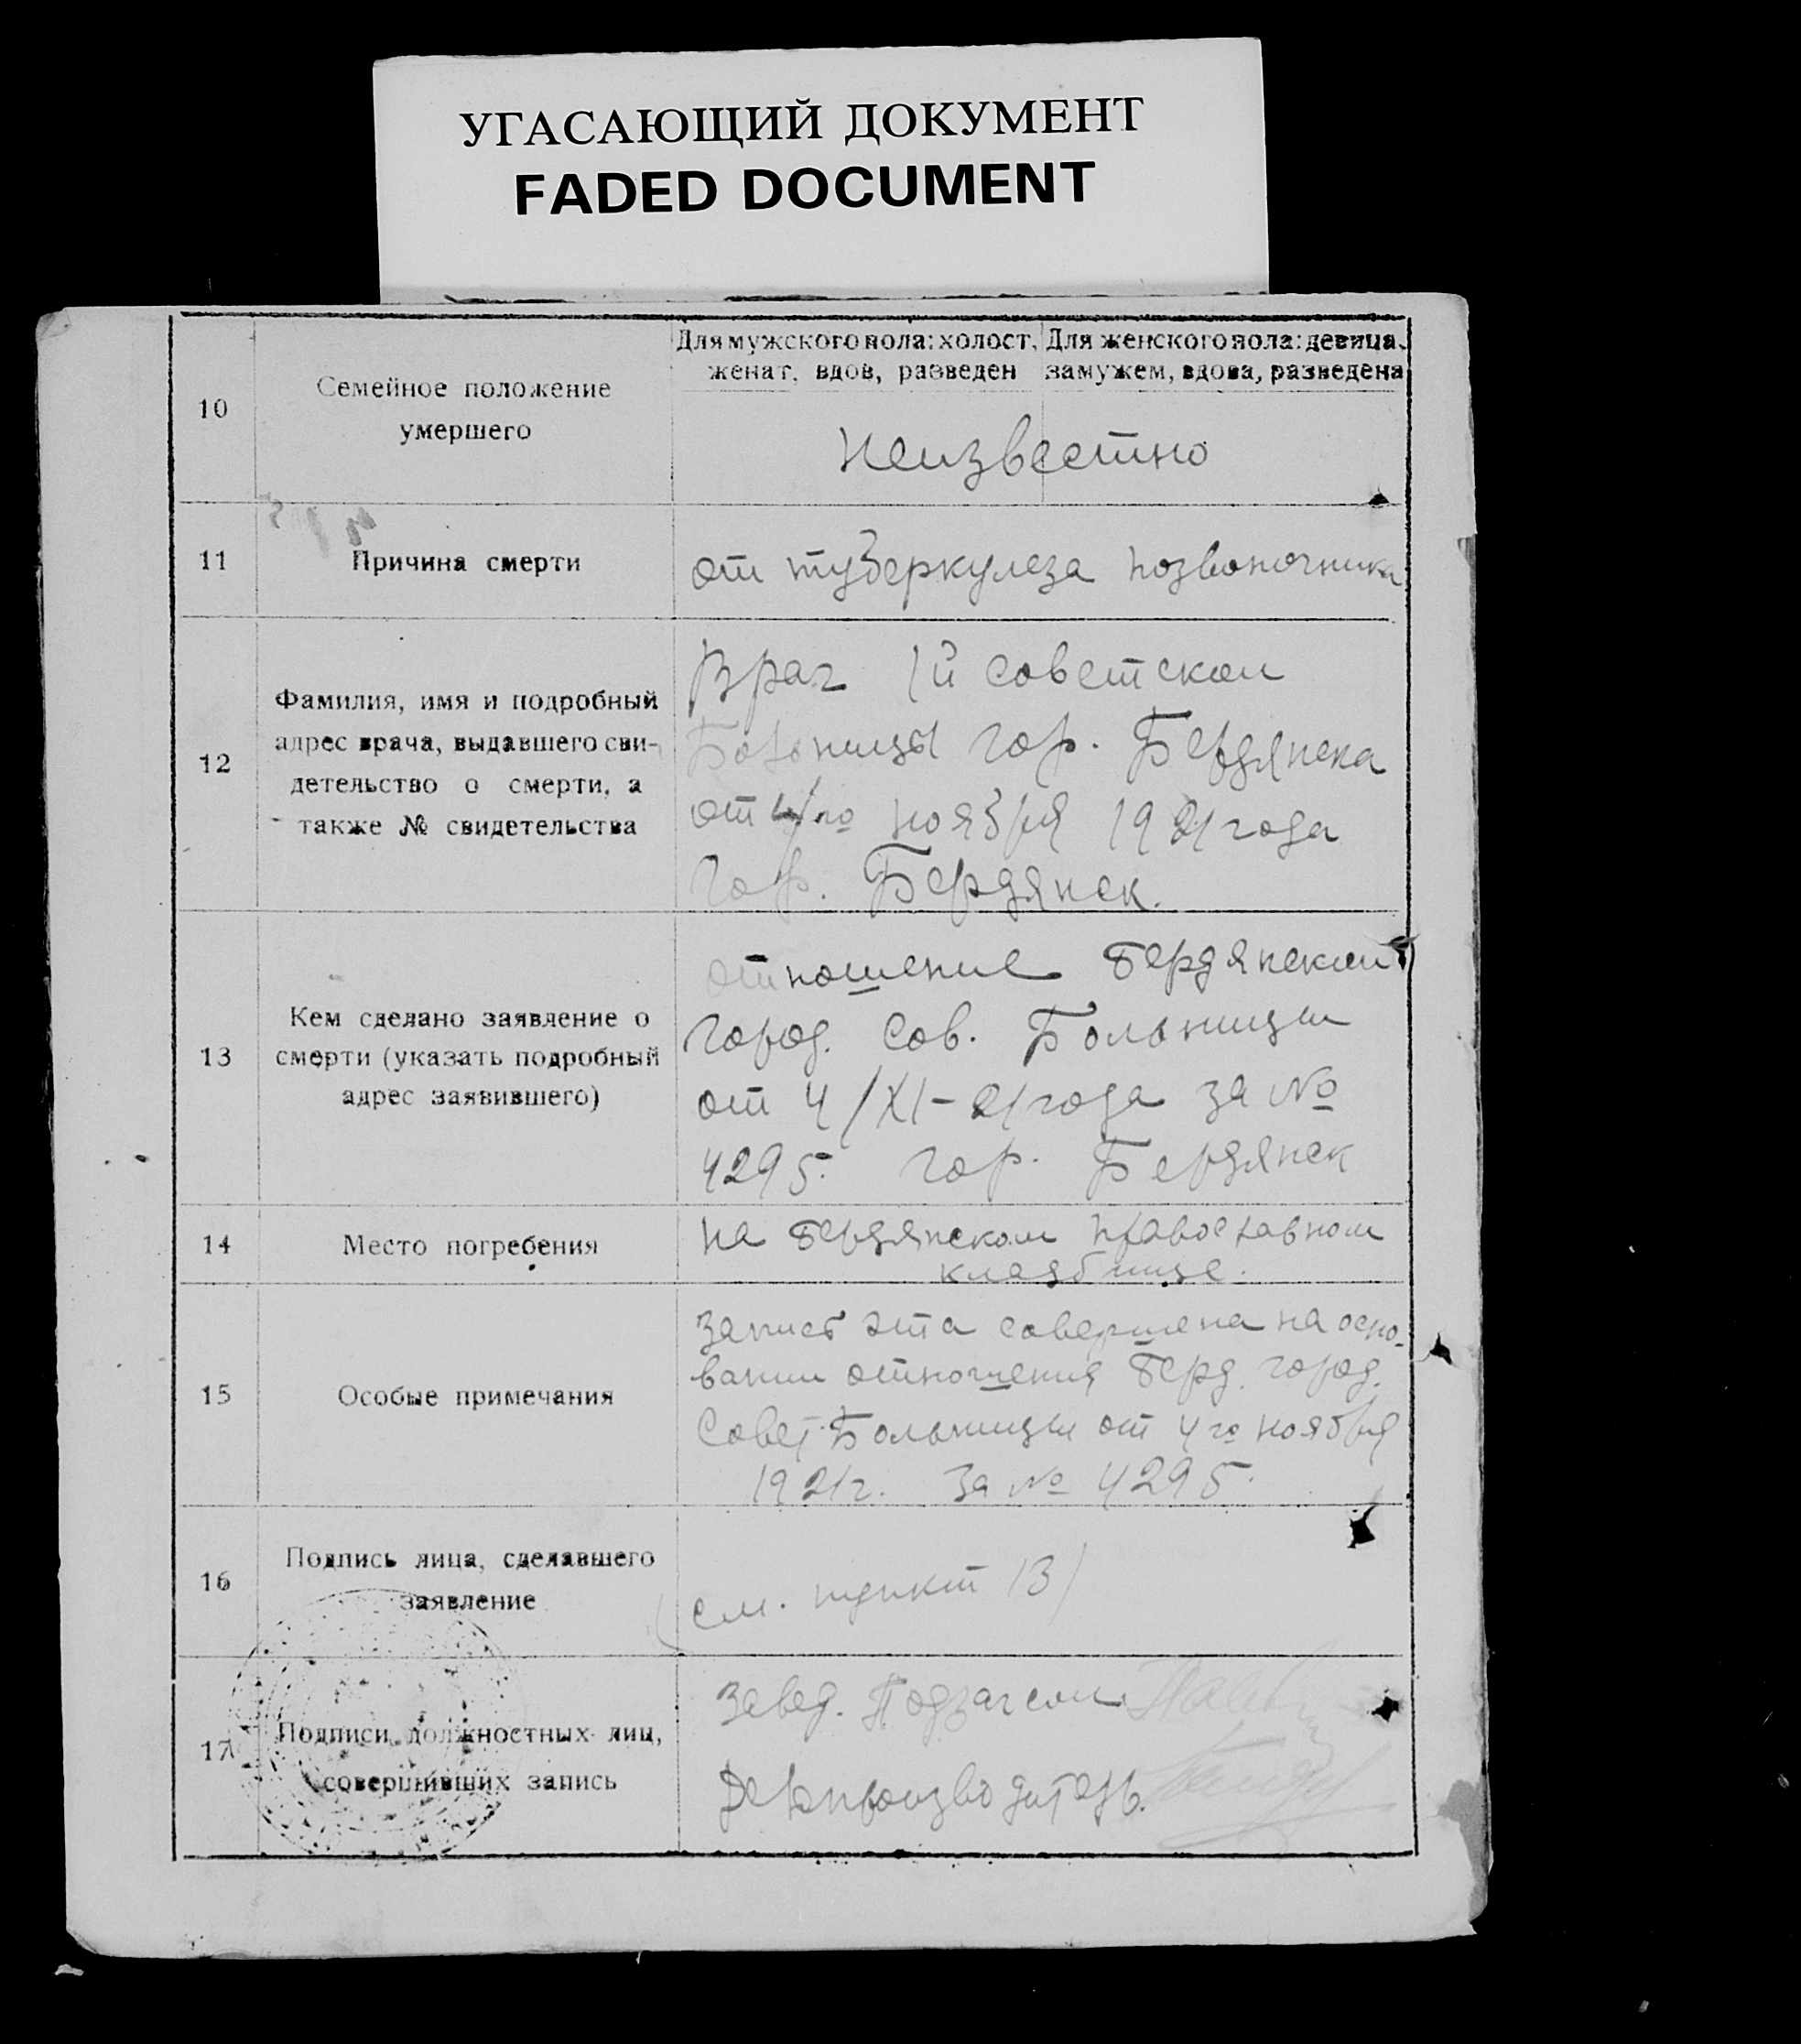 УГАСАЮЩИЙ ДОКУМЕНТ
FADED DOCUMENT
10
Семейное положение
умершего
Для мужского пола: холост,
женат, вдов, разведен
Для женского пола: девица,
замужем, вдова, разведена
Неизвестно
11
Причина смерти
от туберкулеза позвоночника
12
Фамилия, имя и подробный
адрес врача, выдавшего сви-
детельство о смерти, а
также № свидетельства
Врач 1й советской
Больницы гор. Бердянска
от 4/го ноября 1921 года
Гор. Бердянск.
13
Кем сделано заявление о
смерти (указать подробный
адрес заявившего)
отношение Бердянской
город. Сов. Больницы
от 4/XI-21 года за №
4295. гор. Бердянск
14
Место погребения
на Бердянском православном
кладбище.
15
Особые примечания
Запись эта совершена на осно-
вании отношения Берд. город.
Совет. Больницы от 4го ноября
1921г. за № 4295.
16
Подпись лица, сделавшего
заявление
(см. пункт 13)
17
Подписи должностных лиц,
совершивших запись
Завед. Подзагсом
Делопроизводитель.